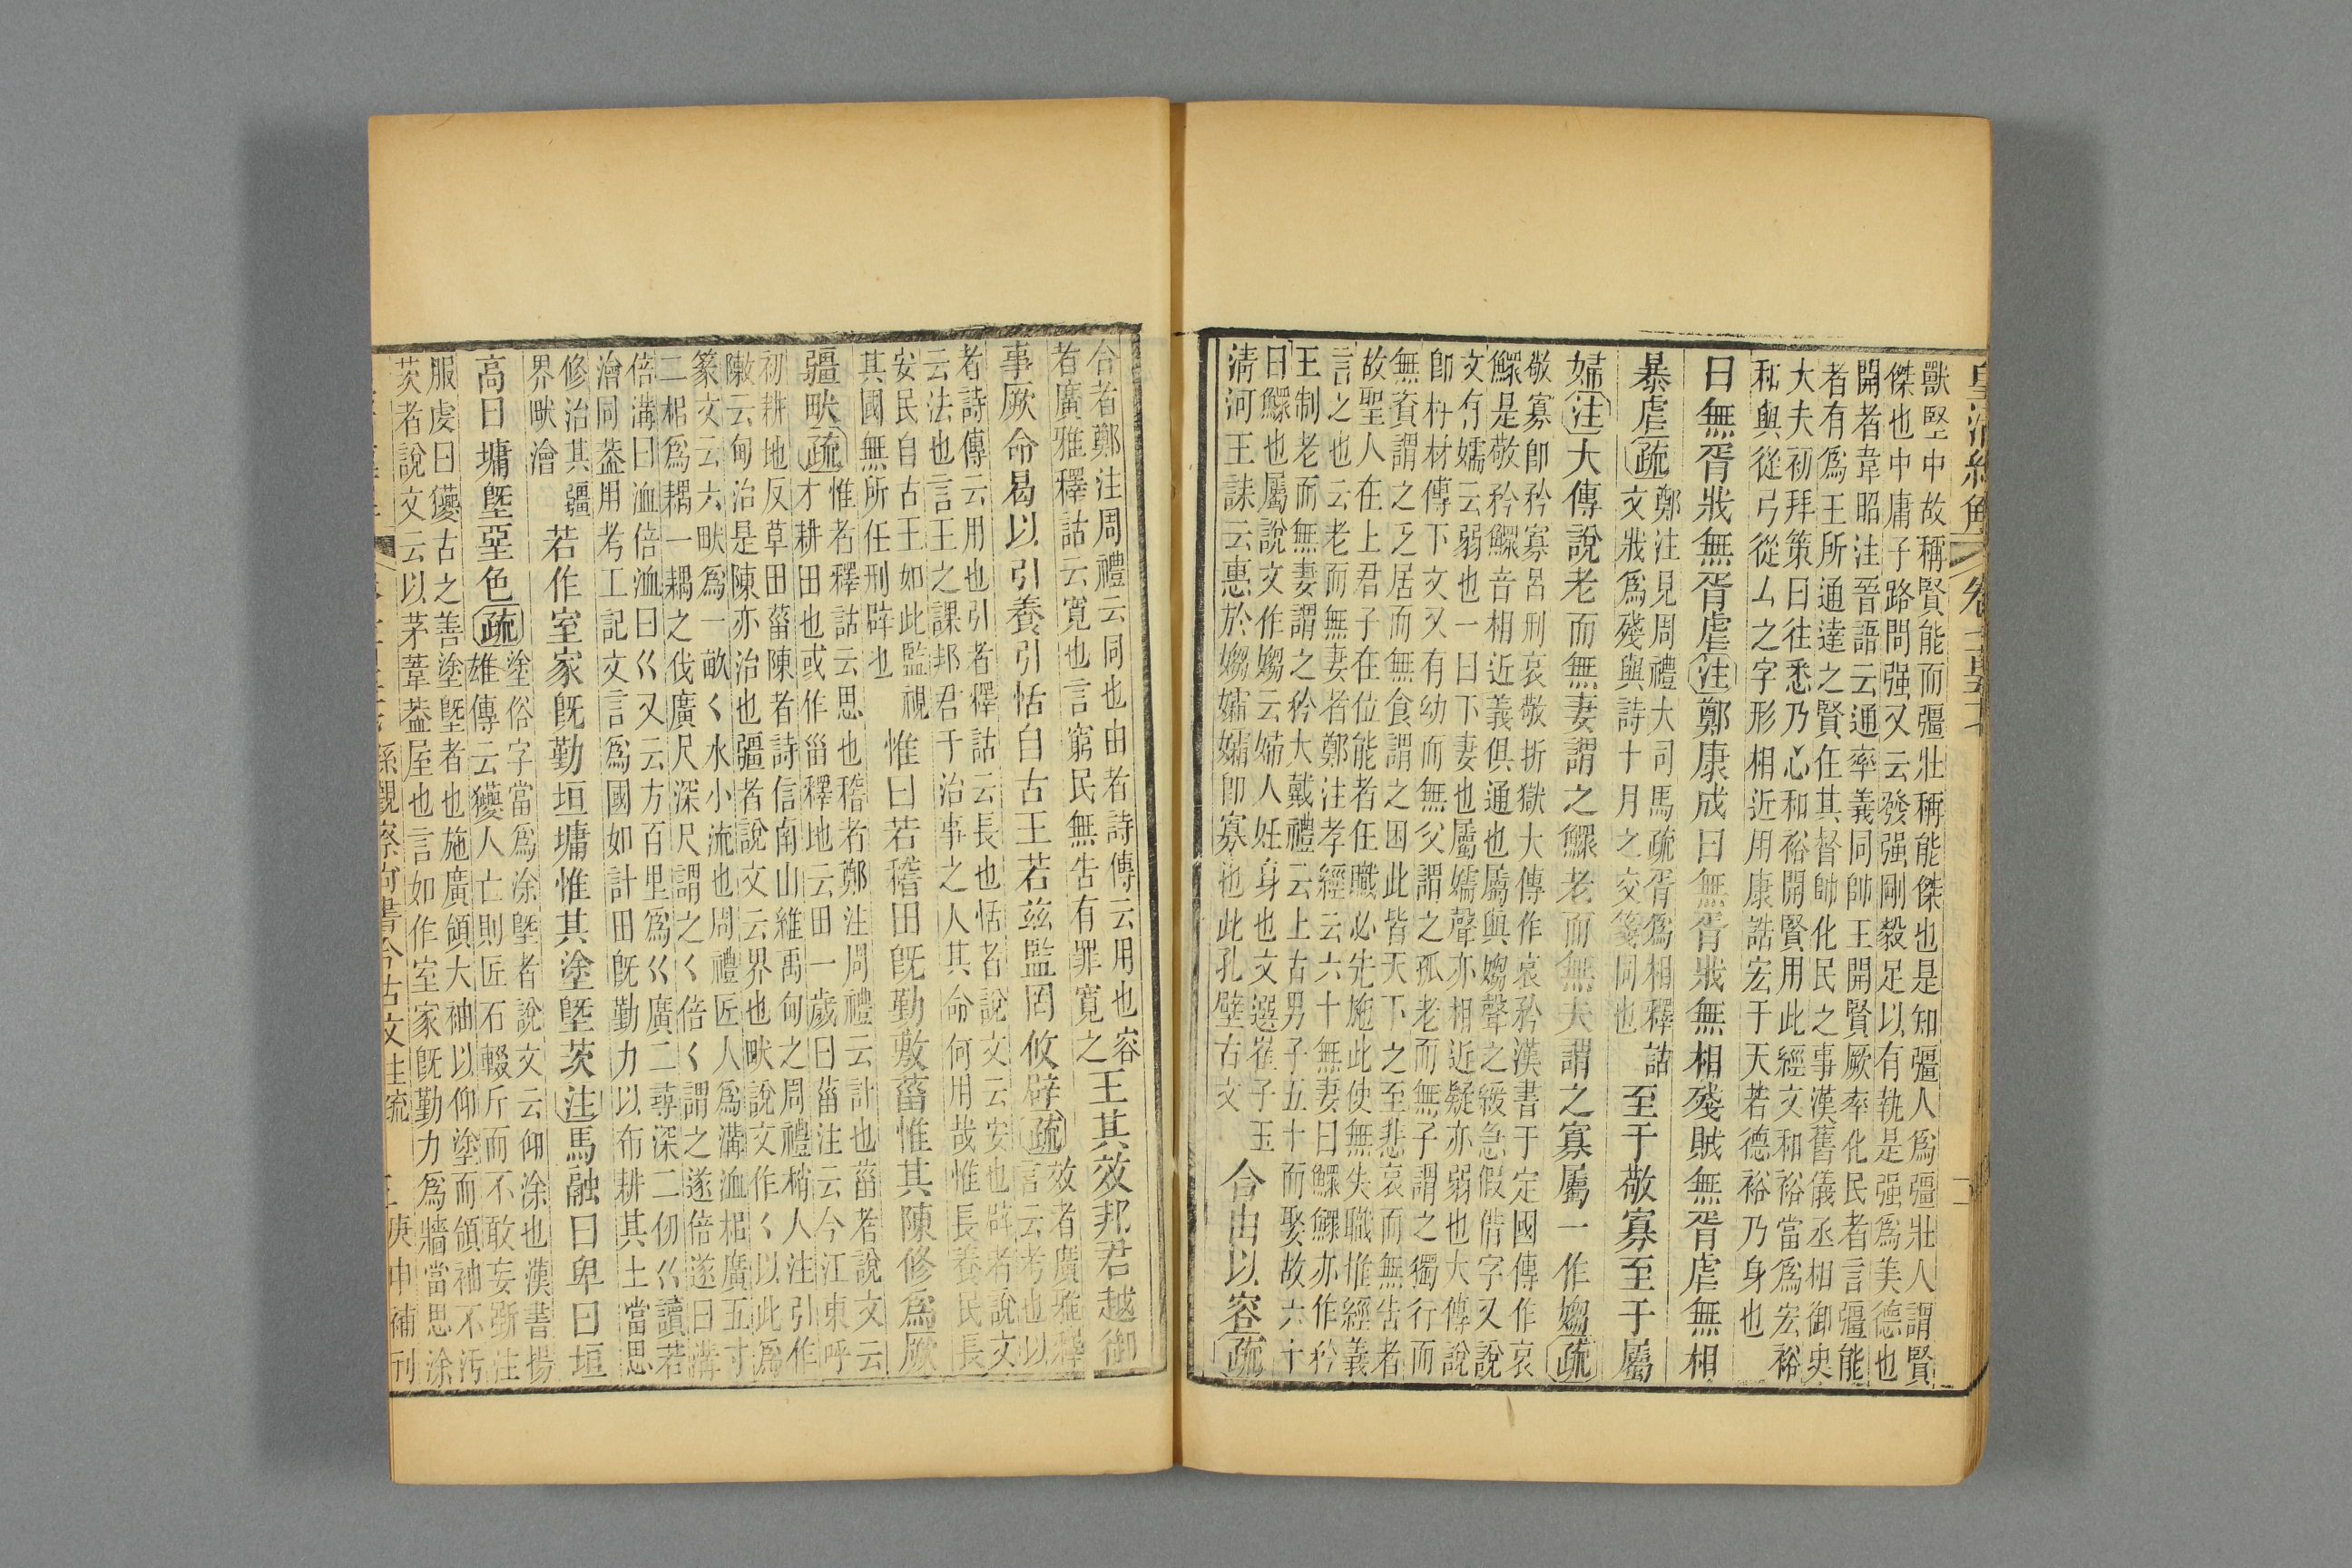 獸堅中故稱賢能而彊壯稱能傑也是知彊人爲彊壯人謂賢
傑也中庸子路問强又云發强剛毅足以有執是强爲美德也
開者韋昭注晉語云通率義同帥王開賢厥率化民者言彊能
者有爲王所通達之賢任其督帥化民之事漢舊儀丞相御史
大夫初拜策曰往悉乃心和裕開賢用此經文和裕當爲宏裕
私與從弓從厶之字形相近用康誥宏于天若德裕乃身也
曰無胥戕無胥虐注鄭康成曰無胥戕無相殘賊無胥虐無相
暴虐疏鄭注見周禮大司馬疏胥爲相釋詁
文戕爲殘與詩十月之交箋同也
至于敬寡至于屬
婦注大傳說老而無妻謂之鰥老而無夫謂之寡屬一作媰疏
敬寡卽矜寡呂刑哀敬折獄大傳作哀矜漢書于定國傳作哀
鰥是敬矜鰥音相近義俱通也屬與媰聲之緩急假借字又說
文有嬬云弱也一曰下妻也屬嬬聲亦相近疑亦弱也大傳說
卽梓材傳下文又有幼而無父謂之孤老而無子謂之獨行而
無資謂之乏居而無食謂之困此皆天下之至悲哀而無告者
故聖人在上君子在位能者任職必先施此使無失職惟經義
言之也云老而無妻者鄭注孝經云六十無妻曰鰥鰥亦作矜
王制老而無妻謂之矜大戴禮云上古男子五十而娶故六十
曰鰥也屬說文作媰云婦人妊身也文選崔子玉
淸河王誄云惠於媰孀孀卽寡也此孔壁古文
合由以容疏
合者鄭注周禮云同也由者詩傳云用也容
者廣雅釋詁云寬也言窮民無告有罪寬之
王其效邦君越御
事厥命曷以引養引恬自古王若茲監罔攸辟疏效者廣雅釋
言云考也以
者詩傳云用也引者釋詁云長也恬者說文云安也辟者說文
云法也言王之課邦君于治事之人其命何用哉惟長養民長
安民自古王如此監視
其國無所任刑辟也
惟曰若稽田旣勤敷菑惟其陳修爲厥
疆畎疏惟者釋詁云思也稽者鄭注周禮云計也菑者說文云
才耕田也或作甾釋地云田一歲曰菑注云今江東呼
初耕地反草田菑陳者詩信南山維禹甸之周禮稍人注引作
敶云甸治是陳亦治也疆者說文云界也畎說文作𡿨以此爲
篆文云六畎爲一畝𡿨水小流也周禮匠人爲溝洫耜廣五寸
二耜爲耦一耦之伐廣尺深尺謂之𡿨倍𡿨謂之遂倍遂曰溝
倍溝曰洫倍洫曰巜又云方百里爲巜廣二尋深二仞巜讀若
澮同葢用考工記文言爲國如計田旣勤力以布耕其土當思
修治其疆
界畎澮
若作室家旣勤垣墉惟其塗塈茨注馬融曰卑曰垣
高曰墉塈堊色疏塗俗字當爲涂塈者說文云仰涂也漢書揚
雄傳云獿人亡則匠石輟斤而不敢妄斲注
服虔曰獿古之善塗塈者也施廣領大袖以仰塗而領袖不汚
茨者說文云以茅葦葢屋也言如作室家旣勤力爲牆當思涂
庚申補刊